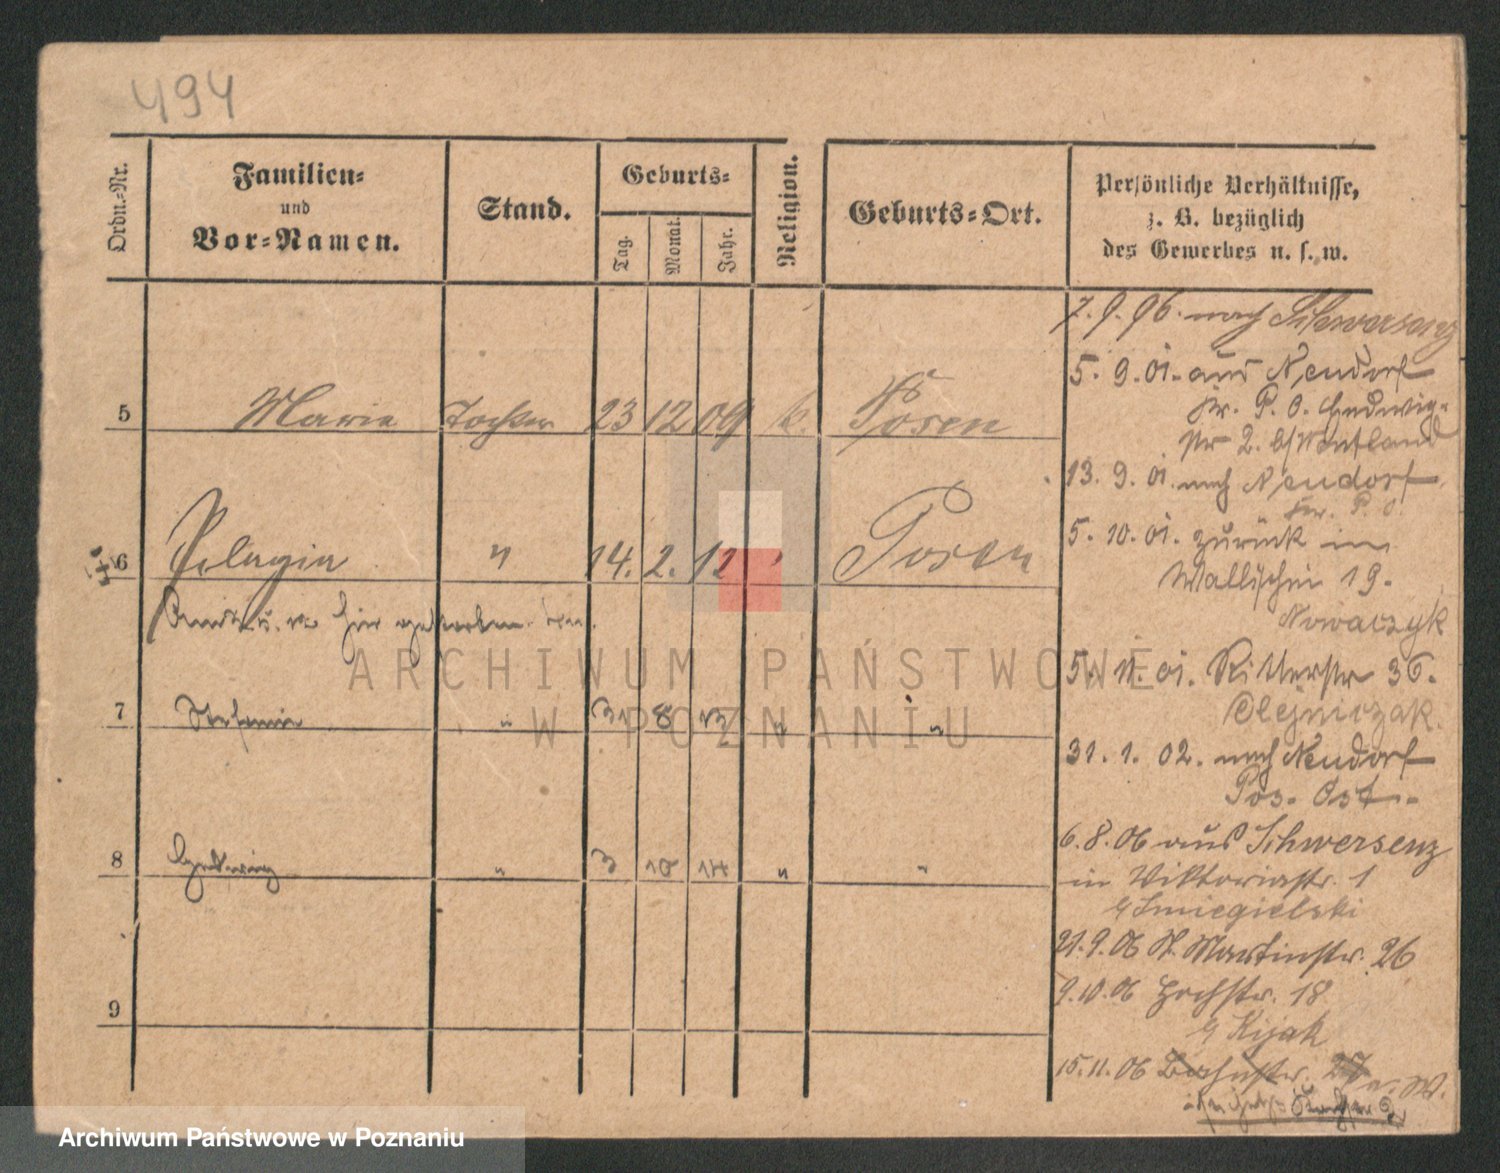 494
Ordn.-Nr.
Familien-
und
Vor-Namen.
Stand.
Geburts-
Tag.
Monat.
Jahr.
Religion.
Geburts-Ort.
Persönliche Verhältnisse,
z. B. bezüglich
des Gewerbes u. s. w.
5 Marie Tochter 23 12 09 k. Posen
6 Pelagia " 14. 2. 12 " Posen
hier gestorben
7 Stefanie " 31 8 13 " "
8 Hedwig " 3 10 14 " "
9
7. 9. 96. nach Schwersenz
5. 9. 01. aus Neudorf
Kr. P. O. Hedwig-
str 2. b/
13. 9. 01. nach Neudorf
Kr. P. O.
5. 10. 01. zurück in
Wallischei 19.
Nowaczyk
5. 11. 01. Ritterstr 36.
Olejniczak.
31. 1. 02. nach Neudorf
Pos. Ost.
6. 8. 06 aus Schwersenz
in Viktoriastr. 1
b/ Smiegielski
21. 9. 06 St. Martinstr. 26
9. 10. 06 Hochstr. 18
b/ Kijak
15. 11. 06 Bahnstr. 27
ARCHIWUM PAŃSTWOWE
W POZNANIU
Archiwum Państwowe w Poznaniu